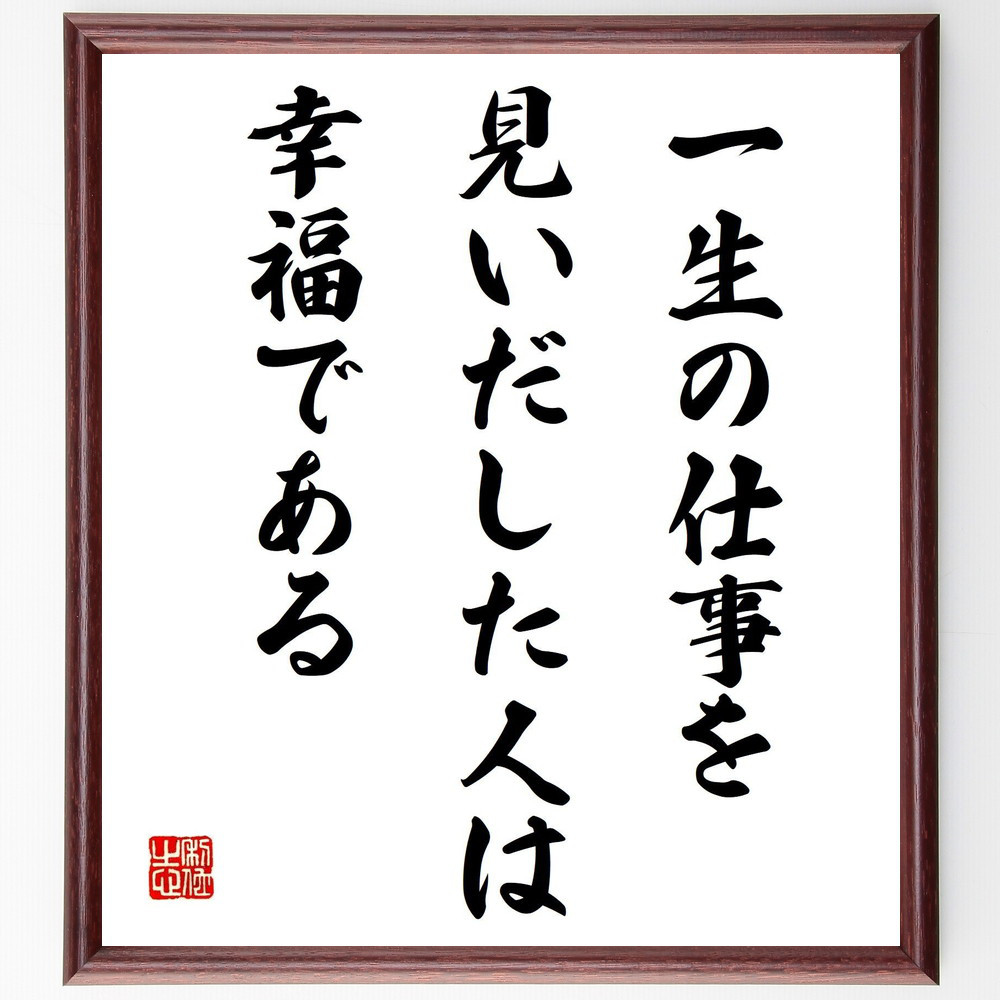 一生の仕事を
見いだした人は
幸福である